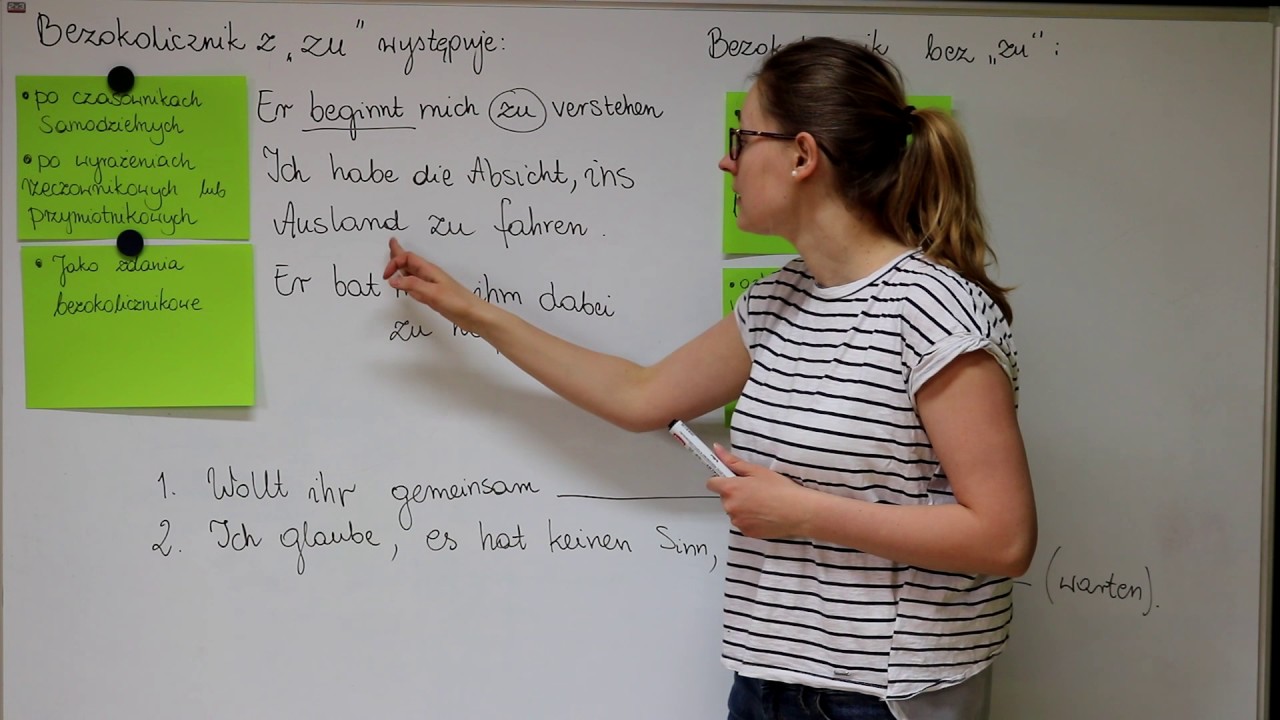 Bezokolicznik z „zu” występuje:
bez „zu“:
• po czasownikach
samodzielnych
• po wyrażeniach
rzeczownikowych lub
przymiotnikowych
• Jako zdania
bezokolicznikowe
Er beginnt mich zu verstehen
Ich habe die Absicht, ins
Ausland zu fahren.
Er bat ihm dabei
zu
1. Wollt ihr gemeinsam
2. Ich glaube, es hat keinen Sinn,
(warten).